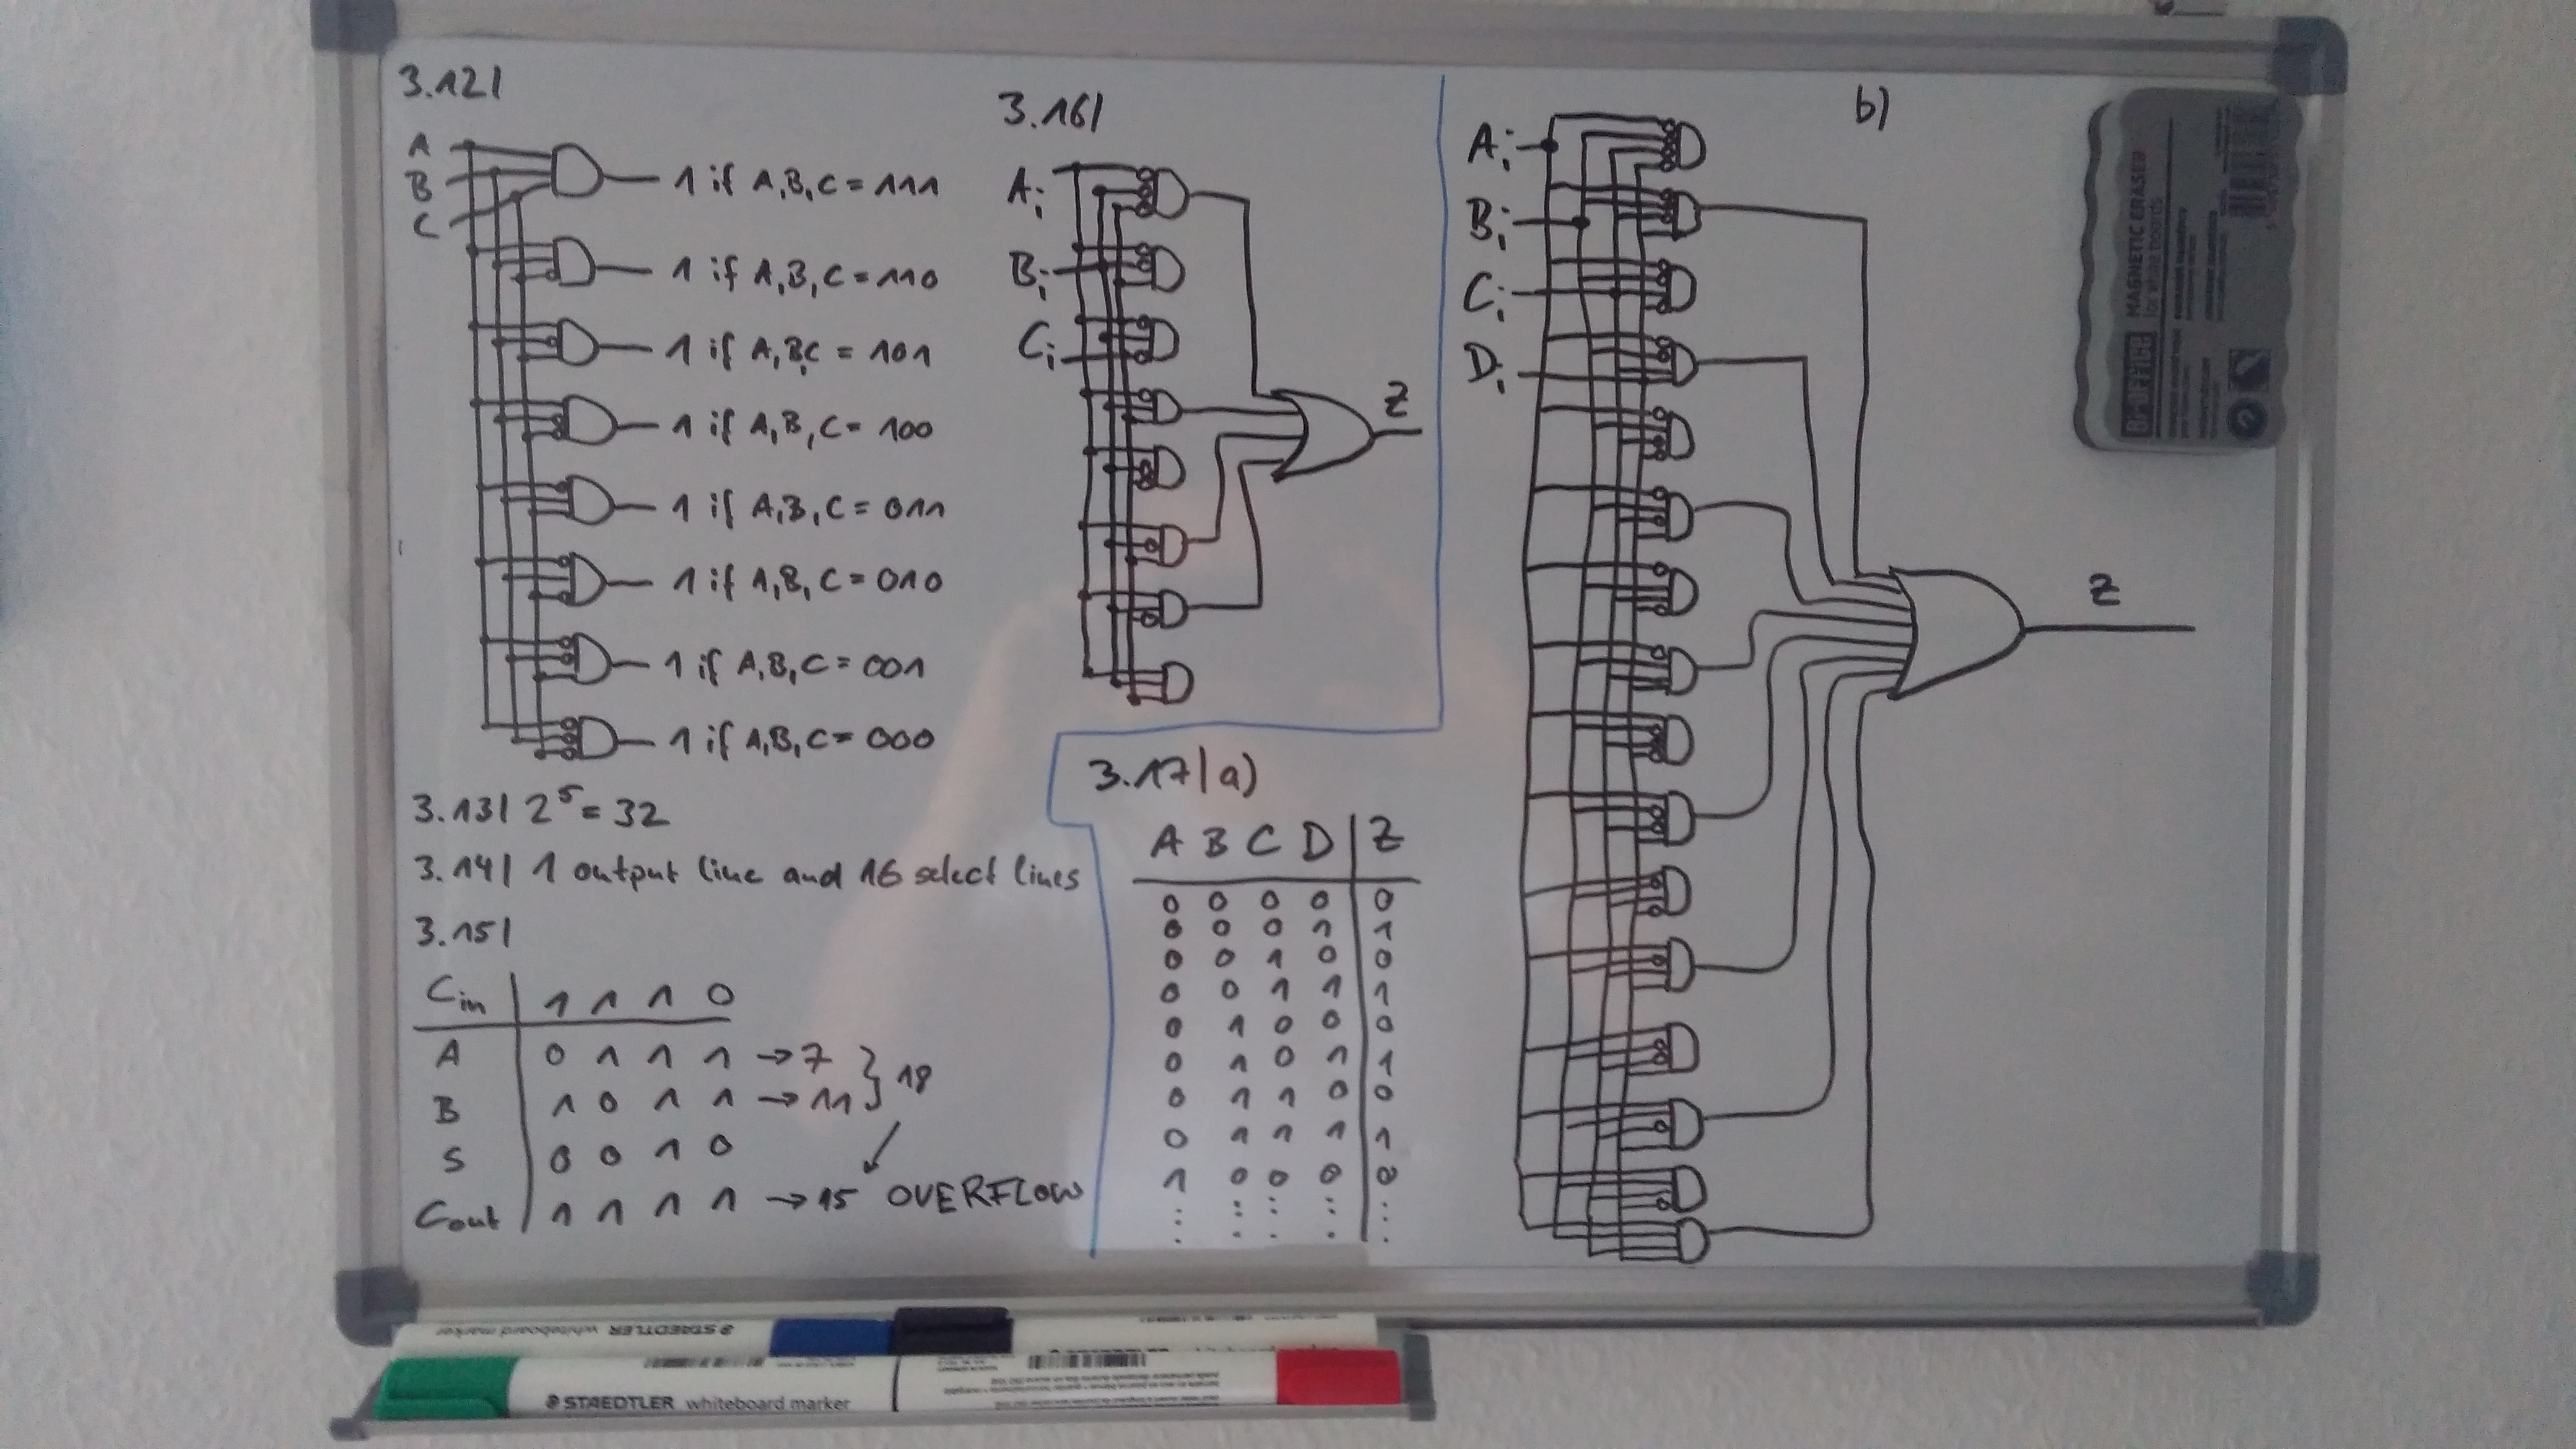 3.12|
A
B
C
1 if A,B,C = 111
1 if A,B,C = 110
1 if A,B,C = 101
1 if A,B,C = 100
1 if A,B,C = 011
1 if A,B,C = 010
1 if A,B,C = 001
1 if A,B,C = 000
3.13| 2⁵ = 32
3.14| 1 output line and 16 select lines
3.15|
Cin | 1 1 1 0
A | 0 1 1 1 → 7
B | 1 0 1 1 → 11
} 18
S | 0 0 1 0
Cout | 1 1 1 1 → 15 OVERFLOW
3.16|
Ai
Bi
Ci
Z
3.17| a)
A B C D | Z
0 0 0 0 | 0
0 0 0 1 | 1
0 0 1 0 | 0
0 0 1 1 | 1
0 1 0 0 | 0
0 1 0 1 | 1
0 1 1 0 | 0
0 1 1 1 | 1
1 0 0 0 | 0
: : : : | :
b)
Ai
Bi
Ci
Di
Z
BI-OFFICE
MAGNETIC ERASER
for white boards
STAEDTLER whiteboard marker
STAEDTLER whiteboard marker